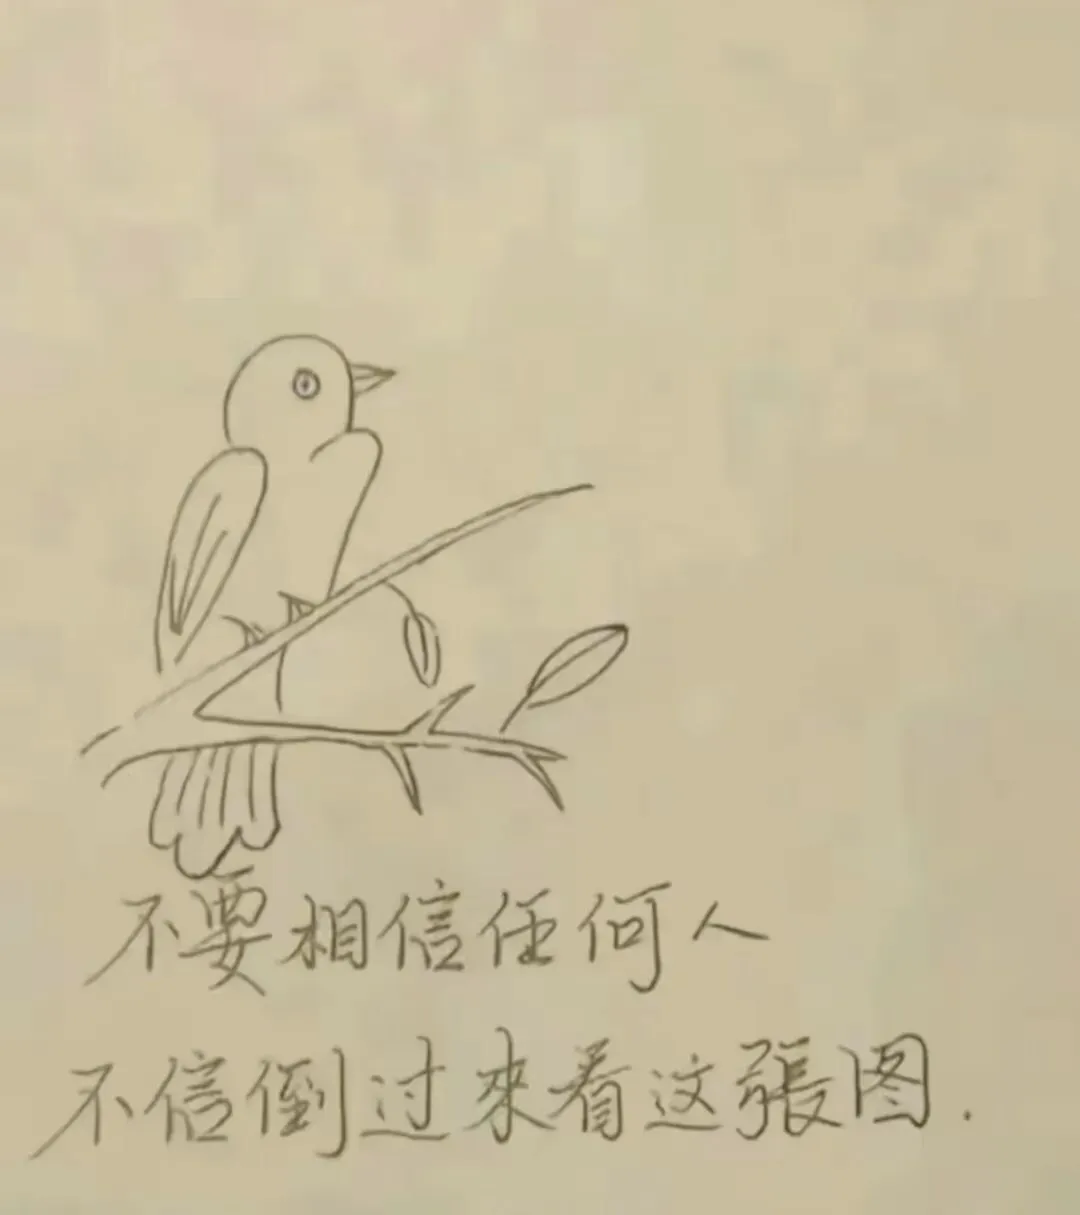 不要相信任何人
不信倒过來看这張图.